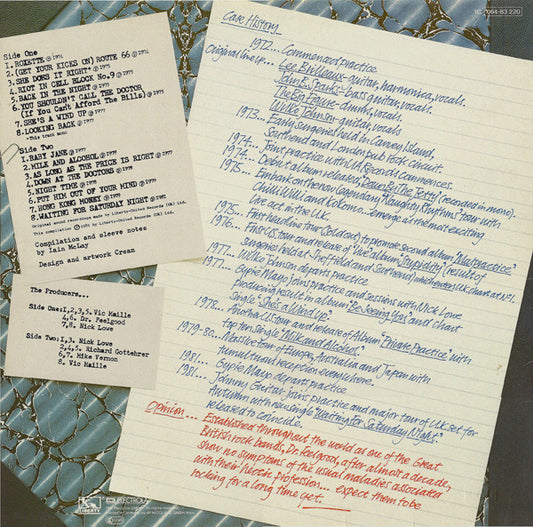 Side One
1. ROXETTE ℗ 1974
2. (GET YOUR KICKS ON) ROUTE 66 ℗ 1974
3. SHE DOES IT RIGHT ℗ 1975
4. RIOT IN CELL BLOCK No.9 ℗ 1976
5. BACK IN THE NIGHT ℗ 1975
6. YOU SHOULDN'T CALL THE DOCTOR
(If You Can't Afford The Bills) ℗ 1975
7. SHE'S A WIND UP ℗ 1977
8. LOOKING BACK ℗ 1977
Side Two
1. BABY JANE ℗ 1977
2. MILK AND ALCOHOL ℗ 1978
3. AS LONG AS THE PRICE IS RIGHT ℗ 1977
4. DOWN AT THE DOCTORS ℗ 1978
5. NIGHT TIME ℗ 1978
6. PUT HIM OUT OF YOUR MIND ℗ 1979
7. HONG KONG MONEY ℗ 1979
8. WAITING FOR SATURDAY NIGHT ℗ 1981
Original sound recordings made by Liberty-United Records (UK) Ltd.
This compilation ℗ 1981 by Liberty-United Records (UK) Ltd.
Compilation and sleeve notes
by Iain McLay
Design and artwork Cream
The Producers...
Side One: 1,2,3,5. Vic Maille
4,6. Dr. Feelgood
7,8. Nick Lowe
Side Two: 1,3. Nick Lowe
2,4,5. Richard Gottehrer
6,7. Mike Vernon
8. Vic Maille
1C 064-83 220
Case History
1972... Commenced practice
Original line up... Lee Brilleaux - guitar, harmonica, vocals.
John B. Sparks - bass guitar, vocals.
The Big Figure - drums, vocals.
Wilko Johnson - guitar, vocals.
1973... Early surgeries held in Canvey Island,
Southend and London pub rock circuit.
1974... Joint practice with UA Records commences.
1974... Debut album released, Down By The Jetty (recorded in mono).
1975... Embark on the now legendary Naughty Rhythms tour with
Chilli Willi and Kokomo... emerge as the most exciting
live act in the U.K.
1975... First headline tour (Sold out) to promote second album "Malpractice"
1976... First US tour and release of 'live' album Stupidity (result of
surgeries held at Sheffield and Southend) which enters UK charts at No1.
1977... Wilko Johnson departs practice
1977... Gypie Mayo joins practice and sessions with Nick Lowe
producing result in album "Be Seeing You" and chart
single "She's a Wind up"
1978... Another US tour and release of Album "Private Practice" with
top ten Single "Milk and Alcohol"
1979-80... Massive tour of Europe, Australia and Japan with
tumultuous reception everywhere.
1981... Gypie Mayo departs practice
1981... Johnny Guitar joins practice and major tour of U.K. set for
Autumn with new single "Waiting for Saturday Night"
released to coincide.
Opinion... Established throughout the world as one of the Great
British rock bands, Dr. Feelgood, after almost a decade,
show no symptoms of the usual maladies associated
with their hectic profession... expect them to be
rocking for a long time yet.
LIBERTY
EMI ELECTROLA